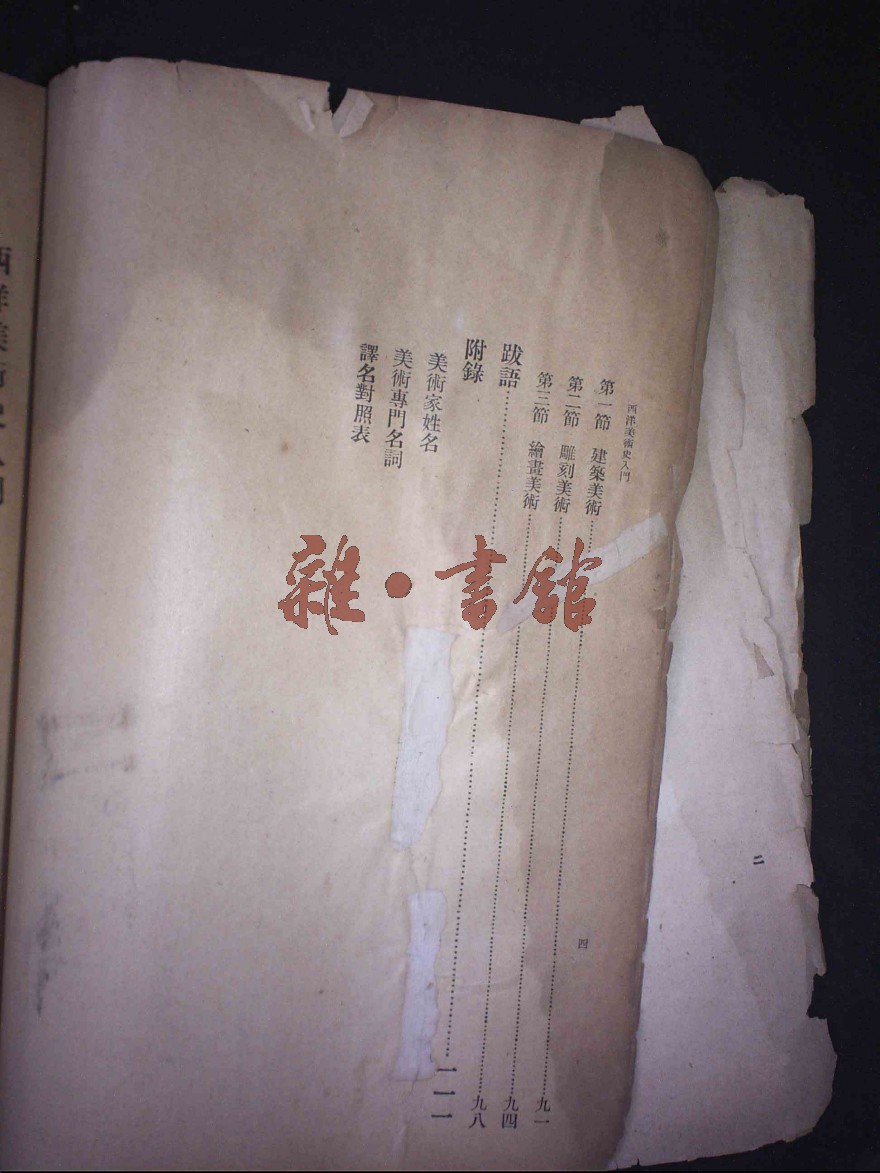 二
西洋美術史入門
四
第一節 建築美術……九一
第二節 雕刻美術……九四
第三節 繪畫美術……九八
跋語……一一一
附錄
美術家姓名
美術專門名詞
譯名對照表
雜·書館